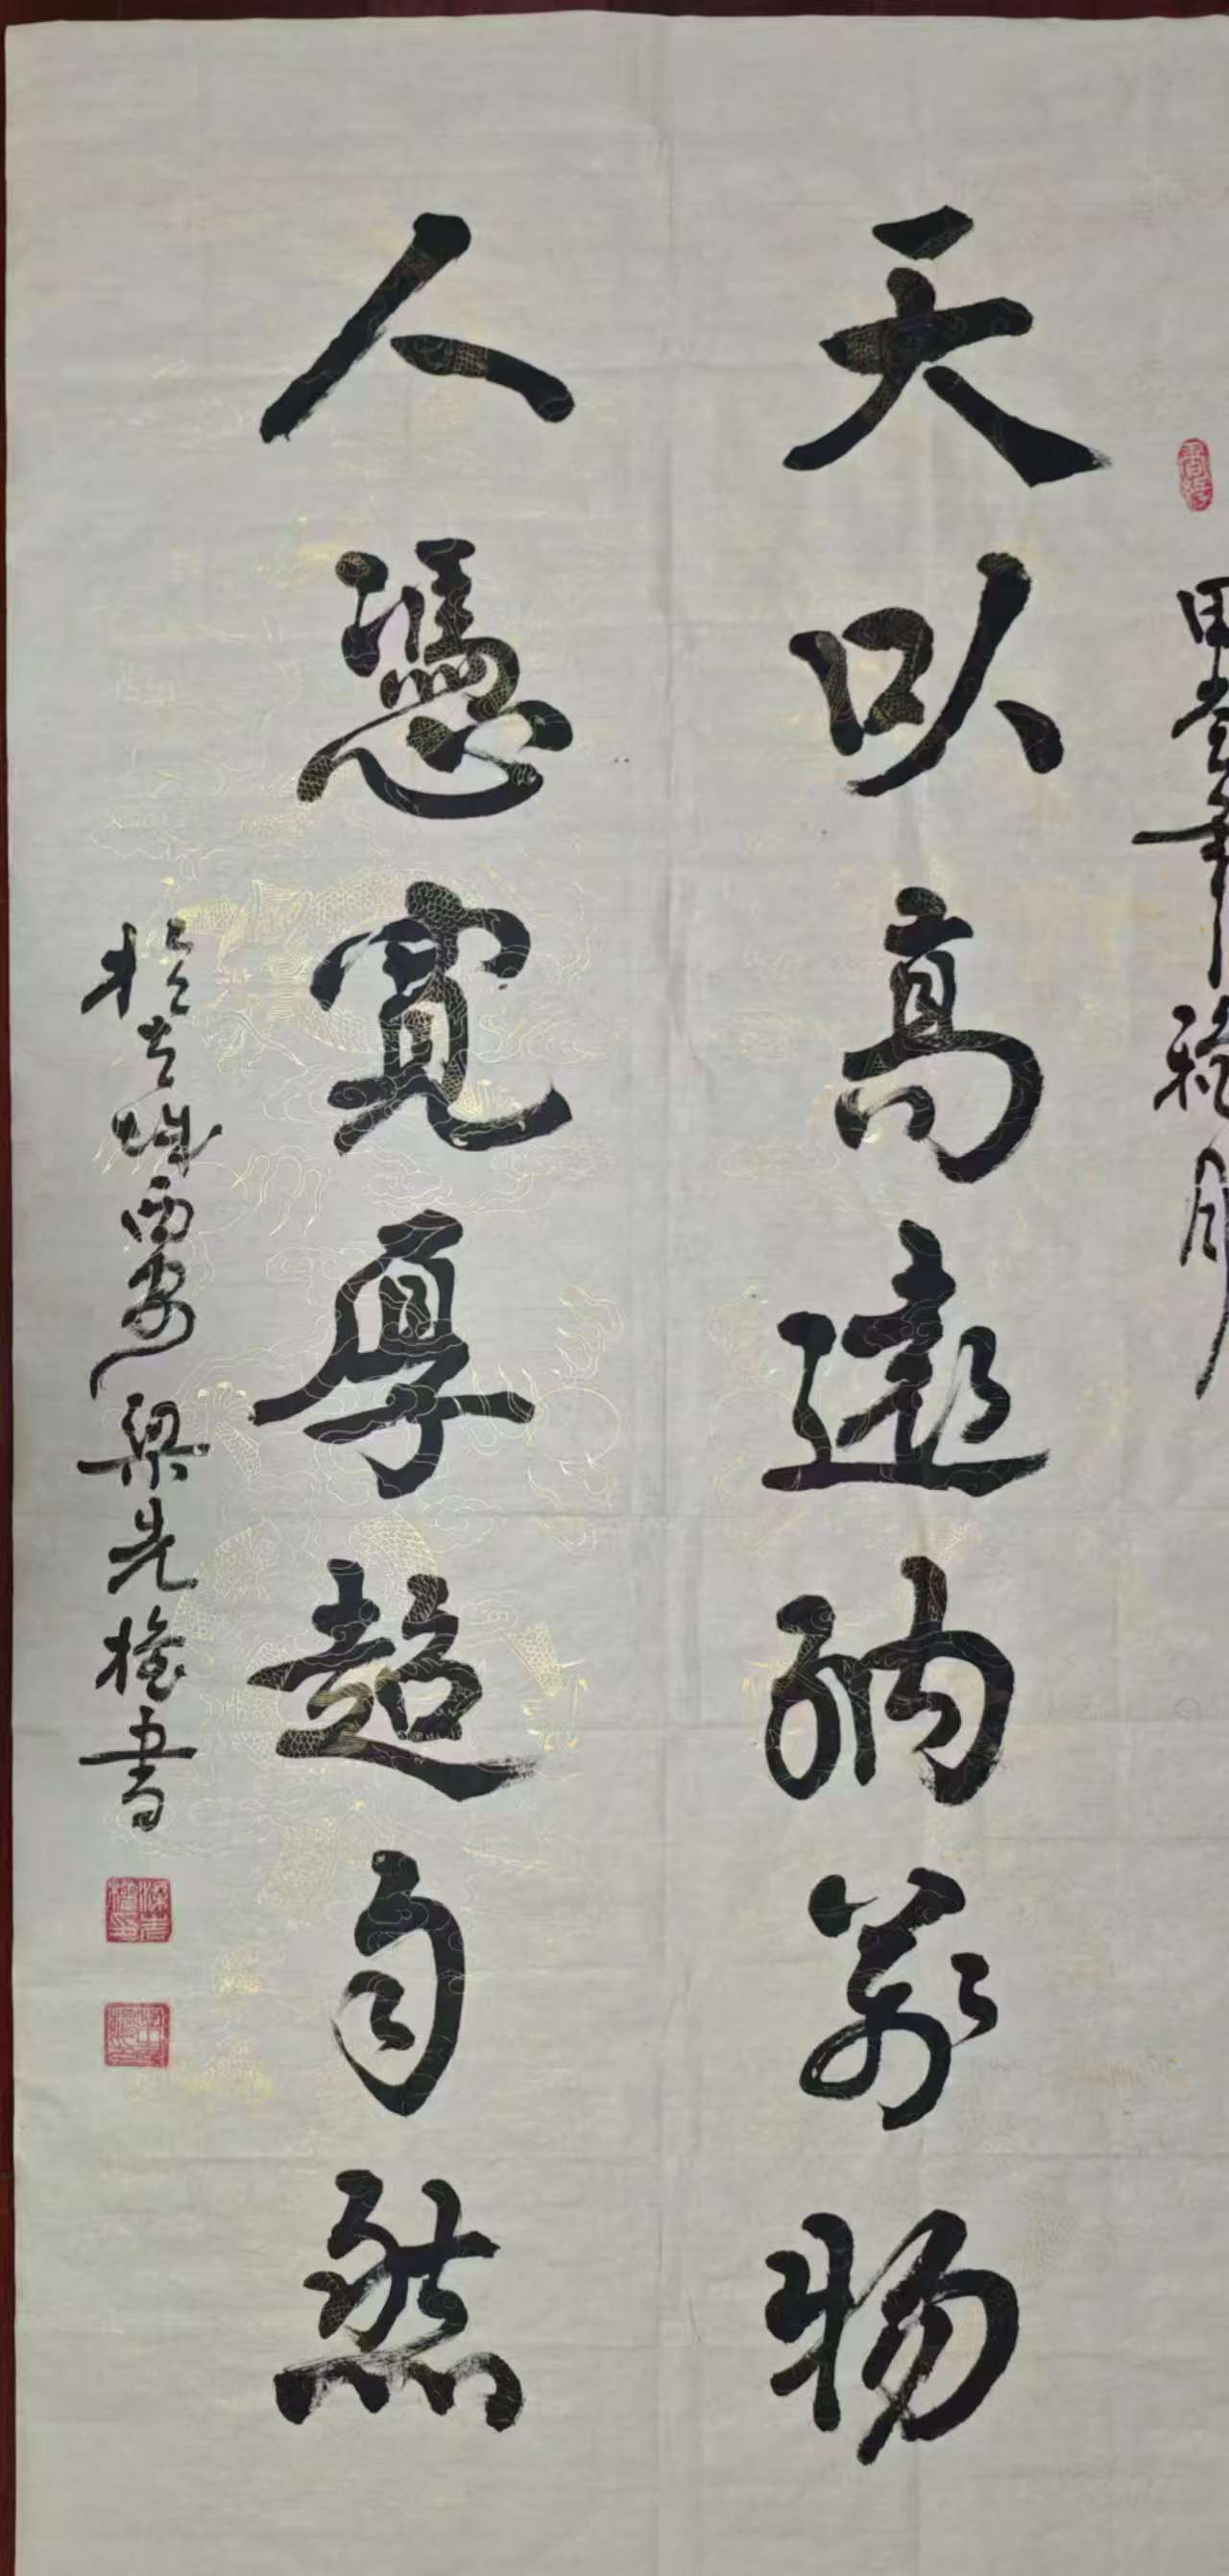 甲辰年秋月
天以高遠納萬物
人憑寬厚超自然
於古城西安梁先權書